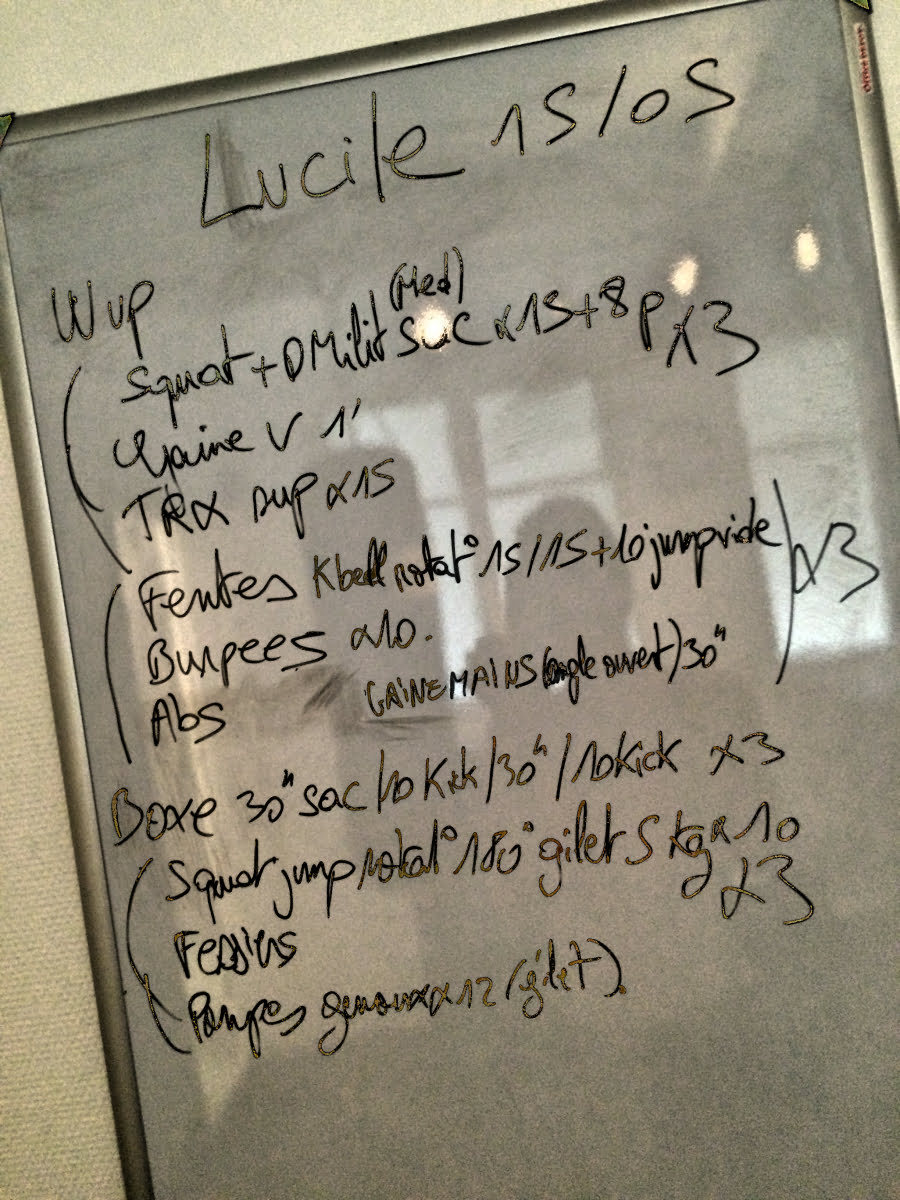 Lucile 15/05
W up
(Med)
Squat + D Milit Sac x15+8p x3
Gaine V 1'
TRX sup x15
Fentes Kbell rotat° 15/15+10 jump vide x3
Burpees x10.
Abs GAINE MAINS (angle ouvert) 30"
Boxe 30" sac/10 Kick/30"/10 kick x3
Squat jump rotat° 180° gilet 5 kg x10
x3
Fessiers
Pompes genoux x12 (gilet).